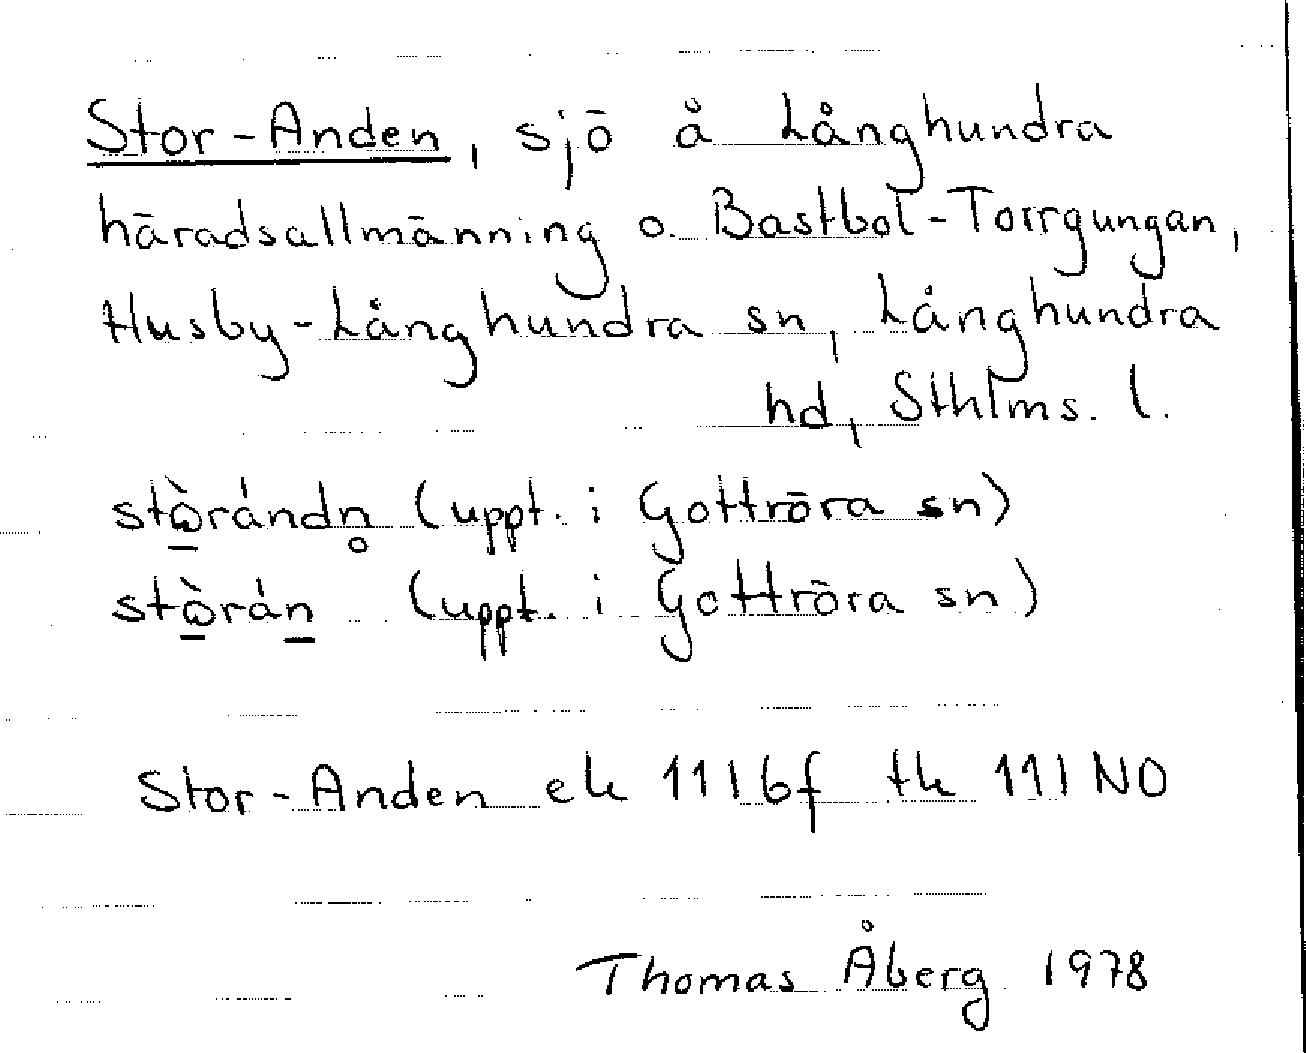 Stor-Anden, sjö å Långhundra
häradsallmänning o. Bastbol-Torrgungan,
Husby-Långhundra sn, Långhundra
hd, Sthlms. l.
stὼ̱rándn̥ (uppt. i Gottröra sn)
stὼ̱ráṉ (uppt. i Gottröra sn)
Stor-Anden ek 11I6f tk 11I NO
Thomas Åberg 1978